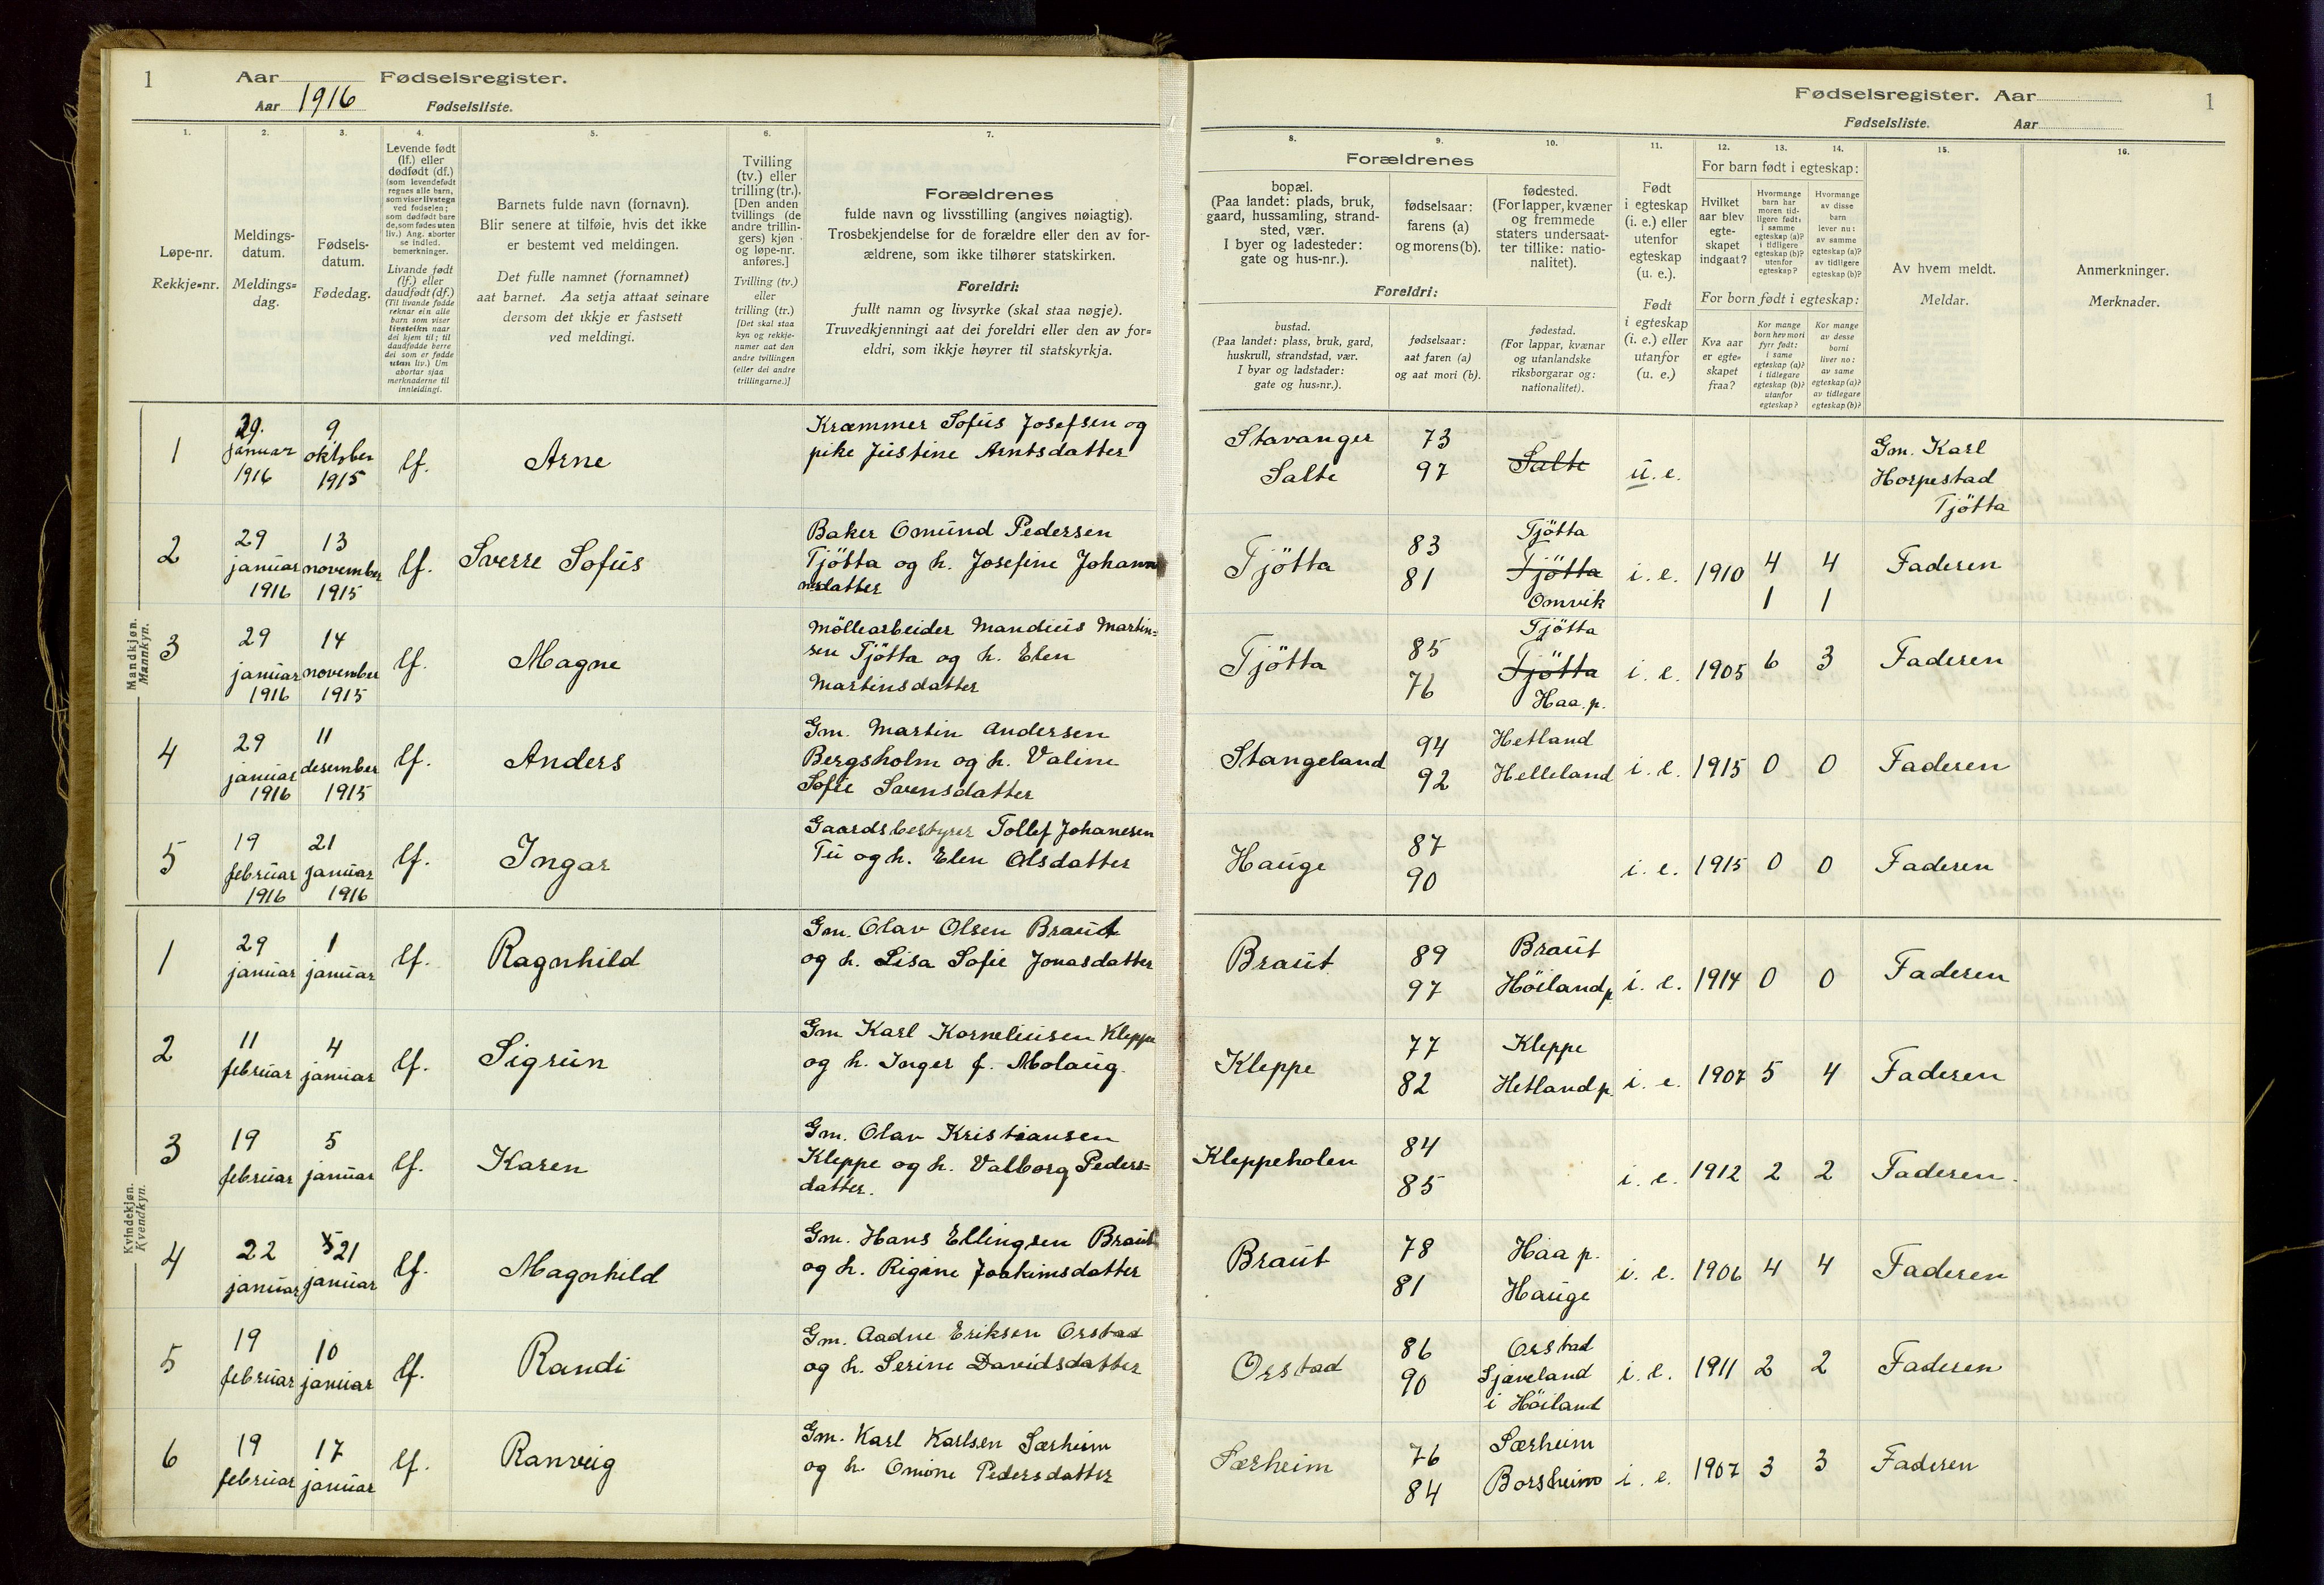 1
Aar Fødselsregister.
Aar 1916 Fødselsliste.
1. 2. 3. 4. 5. 6. 7.
Løpe-nr.
Rekkje=nr.
Meldings-
datum.
Meldings=
dag.
Fødsels-
datum.
Fødedag.
Levende født
(lf.) eller
dødfødt (df.)
(som levendefødt
regnes alle barn,
som viser livstegn
ved fødselen;
som dødfødt bare
de, som fødes uten
liv.) Ang. aborter
se indled.
bemerkninger.
Livande født
(lf.) eller
daudfødt (df.)
(Til livande fødde
reknar ein alle
barn som viser
livsteikn naar
dei kjem til; til
daudfødde berre
dei som er fødde
utan liv.) Um
abortar sjaa
merknaderne til
innleidingi.
Barnets fulde navn (fornavn).
Blir senere at tilføie, hvis det ikke
er bestemt ved meldingen.
Det fulle namnet (fornamnet)
aat barnet. Aa setja attaat seinare
dersom det ikkje er fastsett
ved meldingi.
Tvilling
(tv.) eller
trilling (tr.).
[Den anden
tvillings (de
andre trillin-
gers) kjøn
og løpe-nr.
anføres.]
Tvilling (tv.)
eller
trilling (tr.)
[Det skal staa
kyn og rekkje-
numer aat den
andre tvillingen
(eller dei andre
trillingarne.)]
Forældrenes
fulde navn og livsstilling (angives nøiagtig).
Trosbekjendelse for de forældre eller den av for-
ældrene, som ikke tilhører statskirken.
Foreldri:
fullt namn og livsyrke (skal staa nøgje).
Truvedkjenningi aat dei foreldri eller den av for=
eldri, som ikkje høyrer til statskyrkja.
Mandkjøn.
Mannkyn.
1
29.
januar
1916
9
oktober
1915
lf.
Arne
Kræmmer Sofus Josefsen og
pike Justine Arntsdatter
2
29
januar
1916
13
november
1915
lf.
Sverre Sofus
Baker Omund Pedersen
Tjötta og h. Josefine Johann
nesdatter
3
29
januar
1916
14
november
1915
lf.
Magne
Möllearbeider Mandius Martin=
sen Tjötta og h. Elen
Martinsdatter
4
29
januar
1916
11
desember
1915
lf.
Anders
Gm. Martin Andersen
Bergsholm og h. Valine
Sofie Sørensdatter
5
19
februar
1916
21
januar
1916
lf.
Ingar
Gaardsbestyrer Tollef Johanesen
Tu og h. Elen Olsdatter
Kvindekjøn.
Kvendkyn.
1
29
januar
1
januar
lf.
Ragnhild
Gm. Olav Olsen Braut
og h. Lisa Sofie Jonasdatter
2
11
februar
4
januar
lf.
Sigrun
Gm Karl Korneliusen Kleppe
og h. Inger f. Molaug.
3
19
februar
5
januar
lf.
Karen
Gm. Olav Kristiansen
Kleppe og h. Valborg Peders=
datter.
4
22
januar
21
januar
lf.
Magnhild
Gm. Hans Ellingsen Braut
og h. Rigine Joakimsdatter
5
19
februar
10
januar
lf.
Randi
Gm. Aadne Eriksen Orstad
og h. Serine Davidsdatter
6
19
februar
17
januar
lf.
Ranveig
Gm. Karl Karlsen Særheim
og h. Omine Pedersdatter
Fødselsregister. Aar
1
Fødselsliste. Aar
8. 9. 10. 11. 12. 13. 14. 15. 16.
Forældrenes
bopæl.
(Paa landet: plads, bruk,
gaard, hussamling, strand-
sted, vær.
I byer og ladesteder:
gate og hus-nr.).
fødselsaar:
farens (a)
og morens (b).
fødested.
(For lapper, kvæner
og fremmede
staters undersaat-
ter tillike: natio-
nalitet).
Foreldri:
bustad.
(Paa landet: plass, bruk, gard,
huskrull, strandstad, vær.
I byar og ladstader:
gate og hus=nr.).
fødselsaar:
aat faren (a)
og aat mori (b).
fødestad.
(For lappar, kvænar
og utanlandske
riksborgarar og:
nationalitet).
Født
i egteskap
(i. e.) eller
utenfor
egteskap
(u. e.).
Født
i egteskap
(i. e.) eller
utanfor
(u. e.)
For barn født i egteskap:
Hvilket
aar blev
egte-
skapet
indgaat?
Hvormange
barn har
moren tid-
ligere født:
i samme
egteskap (a)?
i tidligere
egteskap (b)?
utenfor
egteskap?
Hvormange
av disse
barn
lever nu:
av samme
egteskap (a)?
av tidligere
egteskap (b)?
For born født i egteskap:
Kva aar
er egte=
skapet
fraa?
Kor mange
born hev mori
fyrr født:
i same
egteskap (a)?
i tidlegare
egteskap (b)?
utanfor
egteskap?
Kor mange
av desse
borni
liver no:
av same
egteskap (a)?
av tidlegare
egteskap (b)?
Av hvem meldt.
Meldar.
Anmerkninger.
Merknader.
Stavanger
Salte
73
97
Salte
u. e.
Gm. Karl
Horpestad
Tjötta
Tjötta
83
81
Tjötta
Tjötta
Omvik
i. e.
1910
4
1
4
1
Faderen
Tjötta
85
76
Tjötta
Tjötta
Haa. p.
i. e.
1905
6
3
Faderen
Stangeland
94
92
Hetland
Helleland
i. e.
1915
0
0
Faderen
Hauge
87
90
i. e.
1915
0
0
Faderen
Braut
89
97
Braut
Höiland p.
i. e.
1914
0
0
Faderen
Kleppe
77
82
Kleppe
Hetland p.
i. e.
1907
5
4
Faderen
Kleppeholen
84
85
i. e.
1912
2
2
Faderen.
Braut
78
81
Haa p.
Hauge
i. e.
1906
4
4
Faderen
Orstad
86
90
Orstad
Sjøveland
i Höiland
i. e.
1911
2
2
Faderen
Særheim
76
84
Særheim
Borsheim
i. e.
1907
3
3
Faderen